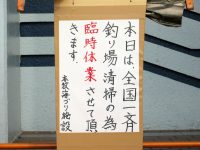 本日は、全国一斉
釣り場清掃の為
臨時休業させて頂
きます。
本牧海づり施設